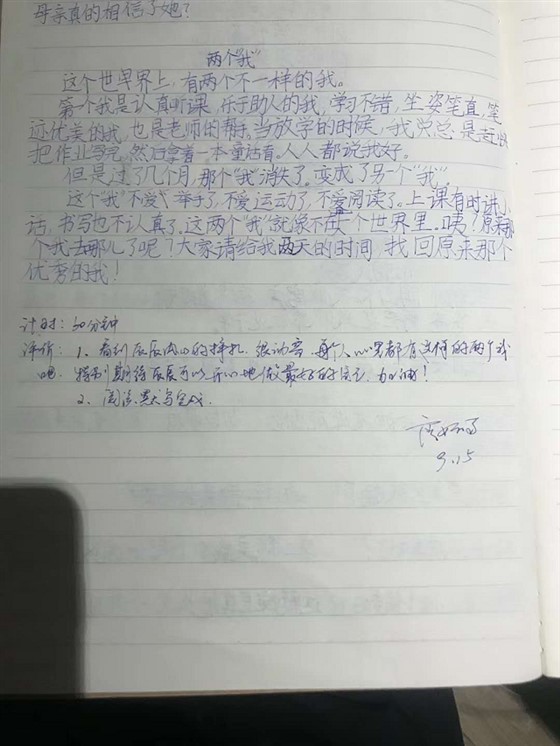 母亲真的相信了她？
两个“我”
这个世界上，有两个不一样的我。
第一个我是认真听课，乐于助人的我，学习不错，坐姿笔直，笔
迹优美的我，也是老师的帮手。当放学的时候，我总总是赶快
把作业写完，然后拿着一本童话看。人人都说我好。
但是过了几个月，那个“我”消失了，变成了另一个“我”。
这个“我”不爱举手了，不爱运动了，不爱阅读了。上课有时讲
话，书写也不认真了。这两个“我”就像不在一个世界里。咦？原来那
个我去哪儿了呢？大家请给我两天的时间，找回原来那个
优秀的我！
计时：30分钟
评价：1、看到辰辰内心的挣扎，很讷，每个人心里都有这样的两个我
吧，特别期待辰辰可以开心地做最好的自己，加油！
2、阅读、默写完成
9.15